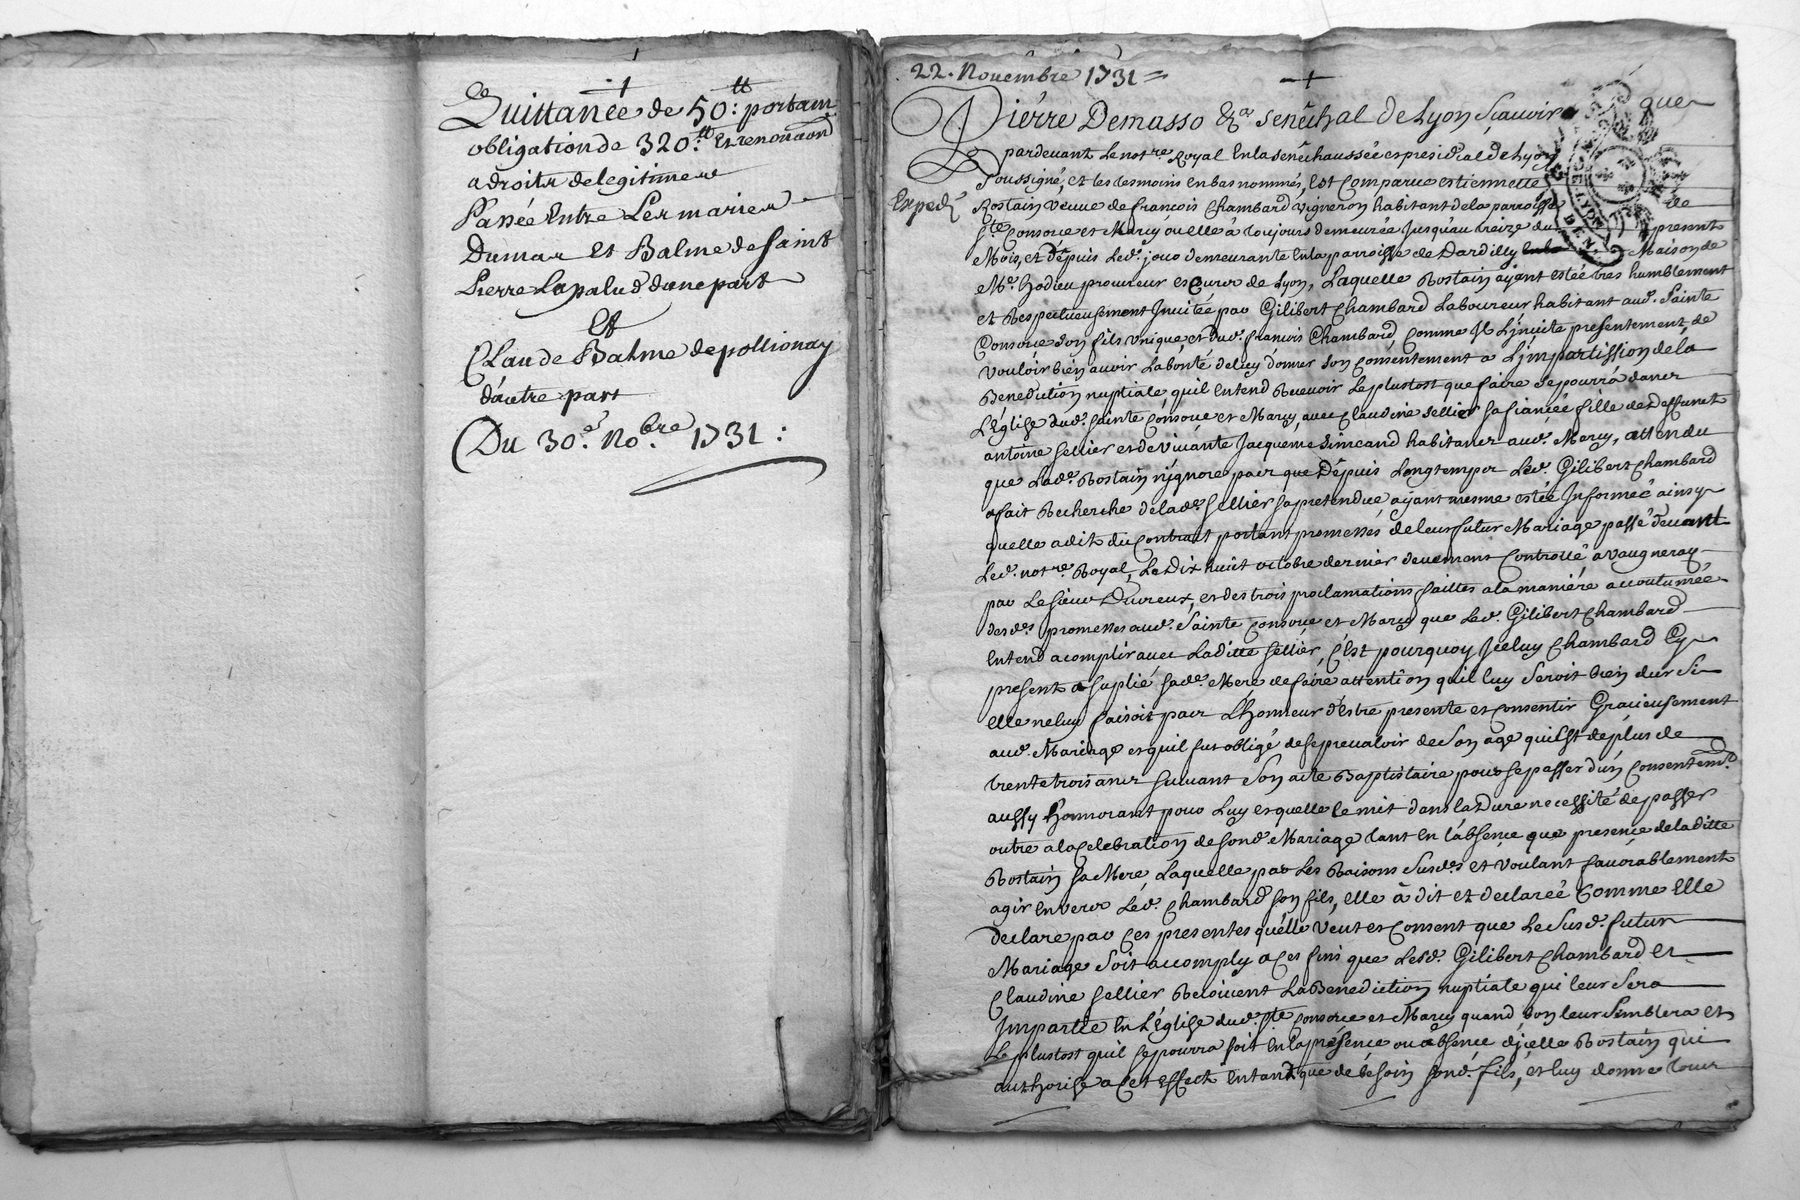 Quittance de 50:tt portam
obligation de 320:tt Et renonaon
a droits de legitimes
Passée Entre Les maries
Dumas Et Balme de Saint
Pierre Lapalud d'une part
Et
Claude Balme de pollionay
d'autre part
Du 30.e No.bre 1731:
22. Novembre 1731 =
Pierre Demasso &a. senechal de Lyon sçavoir que
pardevant Le not.re Royal En la senechaussée et presidial de Lyon
soussigné, et les tesmoins en bas nommés, Est Comparue estiennette
Expedi
Rostain veuve de françois Chambard vigneron habitant de la parroisse de
S.te Consorce et Marcy ou elle a toujours demeurée Jusqu'au treize du present
Mois, et depuis Led. jour demeurante En la parroisse de Dardilly Maison de
M.e hodieu procureur es Cours de Lyon, Laquelle Rostain ayant estée tres humblement
et Respectueusement Invitée par Gilibert Chambard Laboureur habitant aud. Sainte
Consorce son fils unique et dud. françois Chambard, Comme Il L'invite presentement, de
vouloir bien avoir La bonté de luy donner son Consentement a L'impartission de la
Benediction nuptiale qu'il Entend Recevoir Le plustost que faire se pourra dans
L'Eglise dud. sainte Consorce et Marcy, avec Claudine sellier sa fiancée fille de Deffunct
antoine sellier et de vivante Jacqueme simeand habitants aud. Marcy, attendu
que Lad.e Rostain n'ygnore pas que Depuis Longtemps Led. Gilibert Chambard
a fait Recherche de lad.e sellier sa pretendue ayant mesme estée Informeé ainsy
quelle a dit du Contract portant promesses de leur futur Mariage passé devant
Led. not.re Royal, Le dix huict octobre dernier deuement Controllé a vaugneray
par Le sieur Dureux, et des trois proclamations faittes a la maniere accoutumée
desd.s promesses aud. Sainte Consorce et Marcy que Led. Gilibert Chambard
Entend acomplir avec Laditte sellier, C'est pourquoy Iceluy Chambard Cy
present a suplié sad.e Mere de faire attention quil luy seroit bien dur si
elle ne luy faisoit pas L'honneur d'Estre presente et Consentir Gracieusement
aud. Mariage et quil fut obligé de se prevaloir de son age qui Est de plus de
trente trois ans suivant son acte Baptistaire pour se passer d'un Consentem.t
aussy honnorant pour Luy et quelle le mit dans la Dure necessité de passer
outre a la Celebration de sond. Mariage tant en l'absence que presence de laditte
Rostain sa Mere, Laquelle par Les Raisons susd.s et voulant favorablement
agir Envers Led. Chambard son fils, elle a dit et declareé Comme Elle
declare par Ces presentes quelle veut et Consent que Le susd. futur
Mariage Soit acomply a Ces fins que Lesd. Gilibert Chambard et
Claudine Sellier Reçoivent La Benediction nuptiale qui leur sera
Impartie En L'Eglise dud. S.te Consorce et Marcy quand bon leur semblera et
Le plustost quil se pourra soit En la presence ou absence d'icelle Rostain qui
authorise a cet Effect Entant que de besoin sond. fils, et luy donne tous